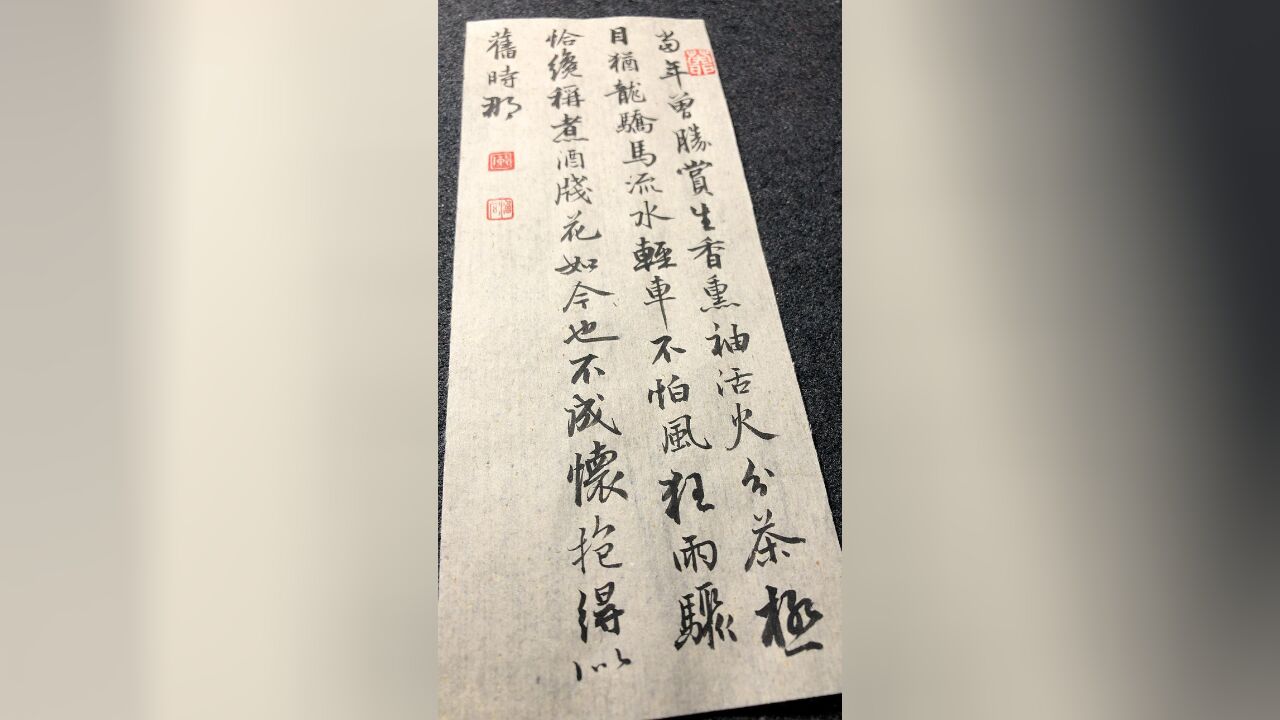 當年曾勝賞生香熏袖活火分茶極
目猶龍驕馬流水輕車不怕風狂雨驟
恰纔稱煮酒牋花如今也不成懷抱得似
舊時那